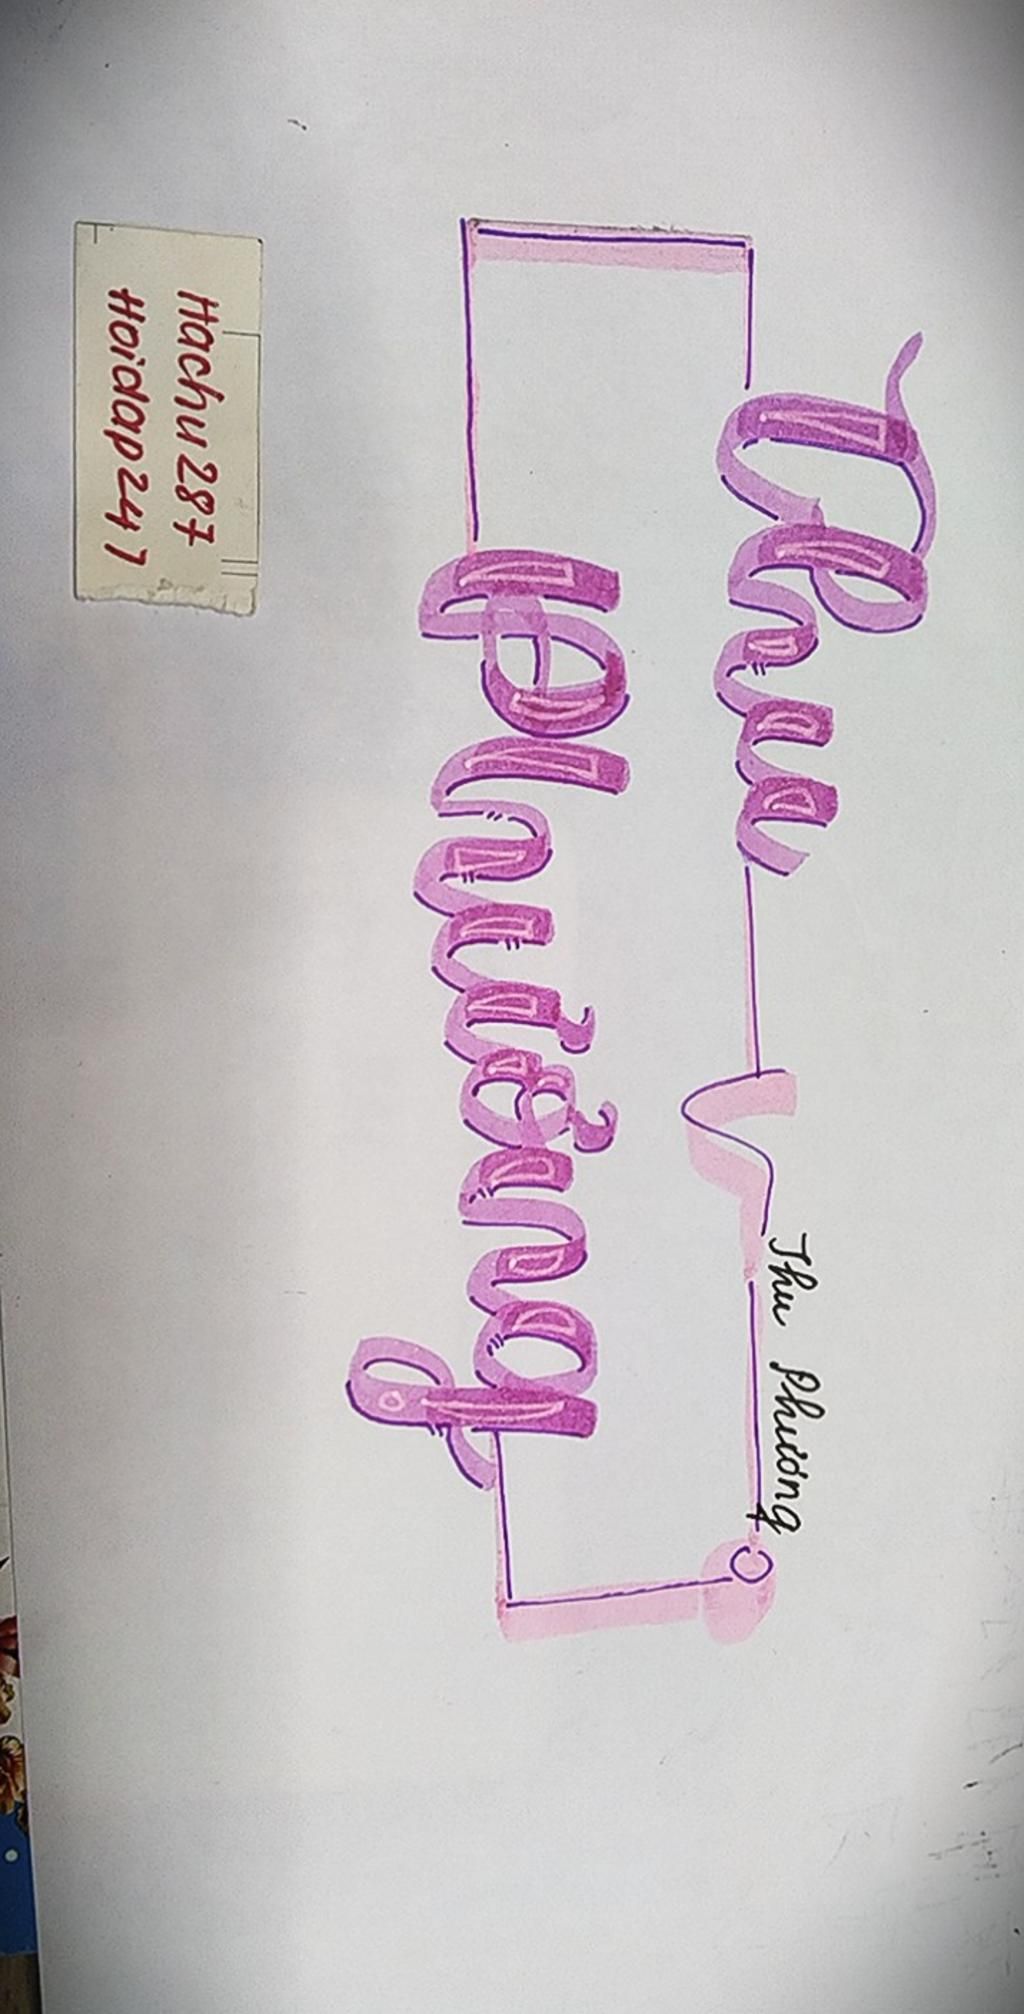 Thu
Phương
Thu Phương
Hachu287
Hoidap247